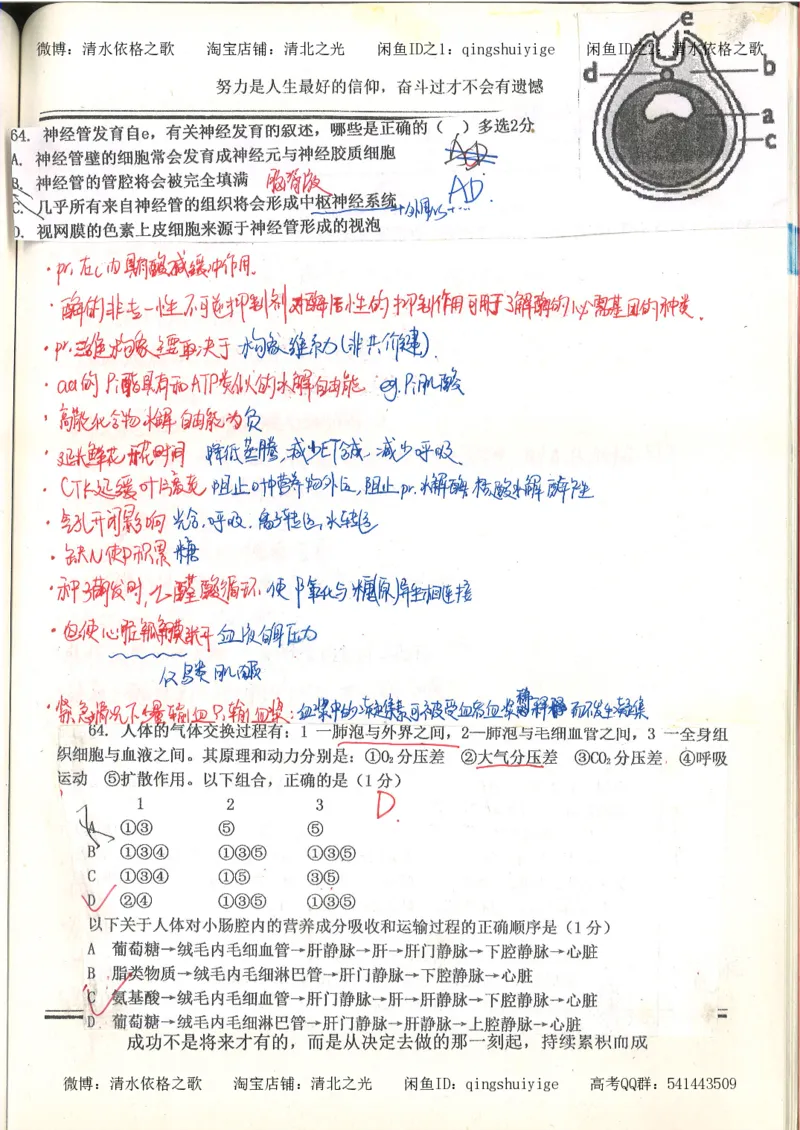 微博：清水依格之歌 淘宝店铺：清北之光 闲鱼ID之1：qingshuiyige 闲鱼ID之2：清水依格之歌
努力是人生最好的信仰，奋斗过才不会有遗憾
e
d
b
a
c
64. 神经管发育自e，有关神经发育的叙述，哪些是正确的（ ）多选2分
A. 神经管壁的细胞常会发育成神经元与神经胶质细胞
B. 神经管的管腔将会被完全填满
AD.
C. 几乎所有来自神经管的组织将会形成中枢神经系统
D. 视网膜的色素上皮细胞来源于神经管形成的视泡
·pr.在c内具有酸碱缓冲作用.
·酶的非专一性不可逆抑制剂对酶活性的抑制作用可用于了解酶的必需基团的种类.
·pr.三维构象主要取决于 构象维系力(非共价键).
·aa的Pi酯具有和ATP类似的水解自由能 eg.Pi肌酸
·高能化合物水解自由能为负
·延长鲜花开花时间 降低蒸腾,减少ET合成,减少呼吸
·CTK延缓叶片衰老 阻止叶中营养物外运,阻止pr.水解酶 核酸水解酶产生
·气孔开闭影响 光合.呼吸.离子转运,水转运
·缺N使P积累 糖
·种子萌发时,乙醛酸循环 使β氧化与糖原异生相连接
·迫使心脏瓣膜张开 血液自身压力
仅 类 肌酸
·紧急情况下少量输血Pi输血浆:血浆中的凝集素可被受血者血浆稀释而不发生凝集
64. 人体的气体交换过程有：1 一肺泡与外界之间，2—肺泡与毛细血管之间，3 一全身组
织细胞与血液之间。其原理和动力分别是：①O₂分压差 ②大气分压差 ③CO₂分压差 ④呼吸
运动 ⑤扩散作用。以下组合，正确的是（1分）
1 2 3 D.
A ①③ ⑤ ⑤
B ①③④ ①③⑤ ①③⑤
C ①③④ ①⑤ ③⑤
D ②④ ①③⑤ ①③⑤
以下关于人体对小肠腔内的营养成分吸收和运输过程的正确顺序是（1分）
A 葡萄糖→绒毛内毛细血管→肝静脉→肝→肝门静脉→下腔静脉→心脏
B 脂类物质→绒毛内毛细淋巴管→肝门静脉→下腔静脉→心脏
C 氨基酸→绒毛内毛细血管→肝门静脉→肝→肝静脉→下腔静脉→心脏
D 葡萄糖→绒毛内毛细淋巴管→肝门静脉→肝静脉→上腔静脉→心脏
成功不是将来才有的，而是从决定去做的那一刻起，持续累积而成
微博：清水依格之歌 淘宝店铺：清北之光 闲鱼ID：qingshuiyige 高考QQ群：541443509